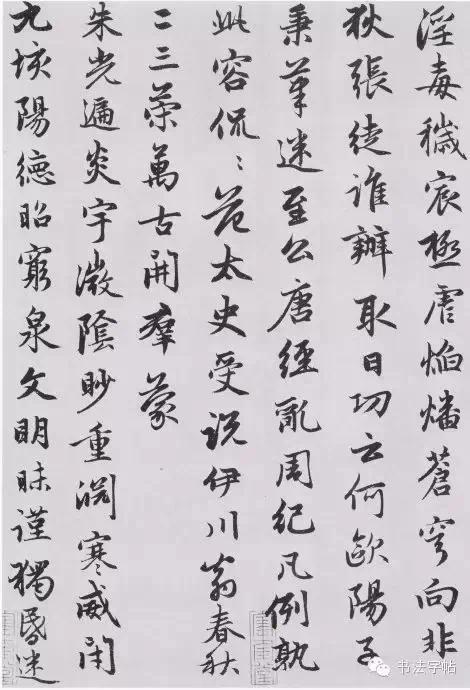 淫毒穢宸極虐焰燔蒼穹向非
狄張徒誰辦取日功云何歐陽子
秉筆迷至公唐經亂周紀凡例孰
此容侃〻范太史受說伊川翁春秋
二三策萬古開羣蒙
朱光遍炎宇微陰眇重淵寒威閉
九垓陽德昭窮泉文明昧謹獨昏迷
书法字帖